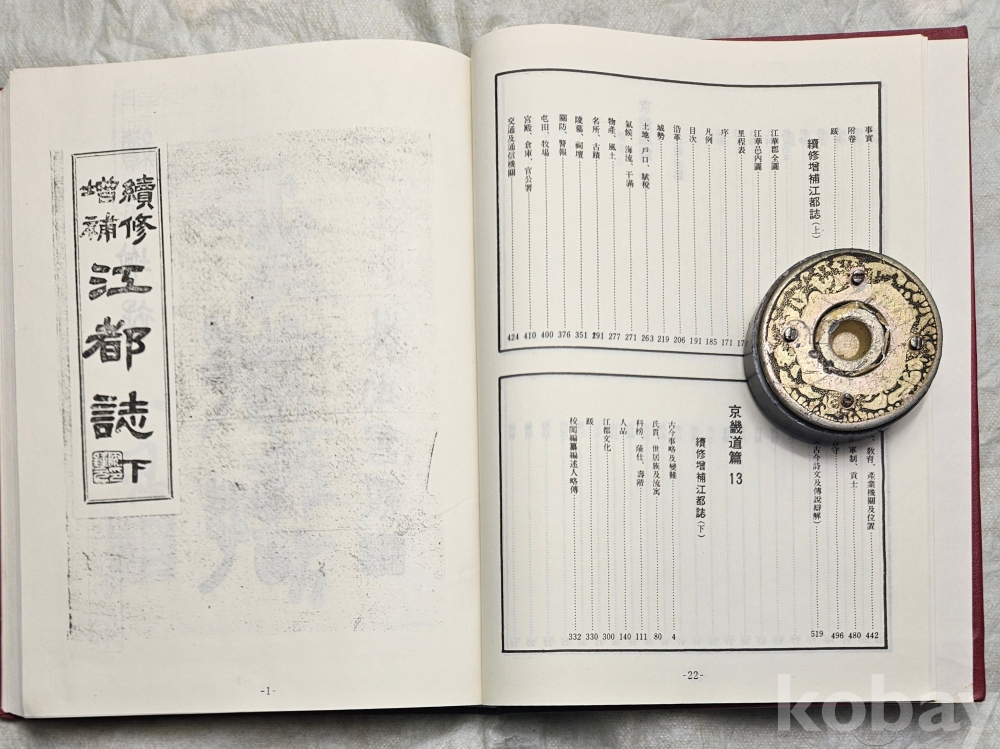 事實
附卷
跋
續修增補江都誌(上)
江華郡全圖
江華邑內圖
里程表
序
凡例 185
目次 191
沿革 206
城勢 219
土地、戶口、賦稅 263
氣候、海流、干滿 271
物產、風土 277
名所、古蹟 291
陵墓、祠壇 351
關防、警報 376
屯田、牧場 400
宮殿、倉庫、官公署 410
交通及通信機關 424
敎育、產業機關及位置 442
軍制、貢士 480
守 496
古今詩文及傳說辯解) 519
京畿道篇 13
續修增補江都誌(下)
古今事略及變難 4
氏貫、世居族及流寓 80
科榜、蔭仕、壽階 111
人品 140
江都文化 300
跋 330
校閱編纂編述人略傳 332
-22-
續修
增補
江都誌 下
-1-
kobay